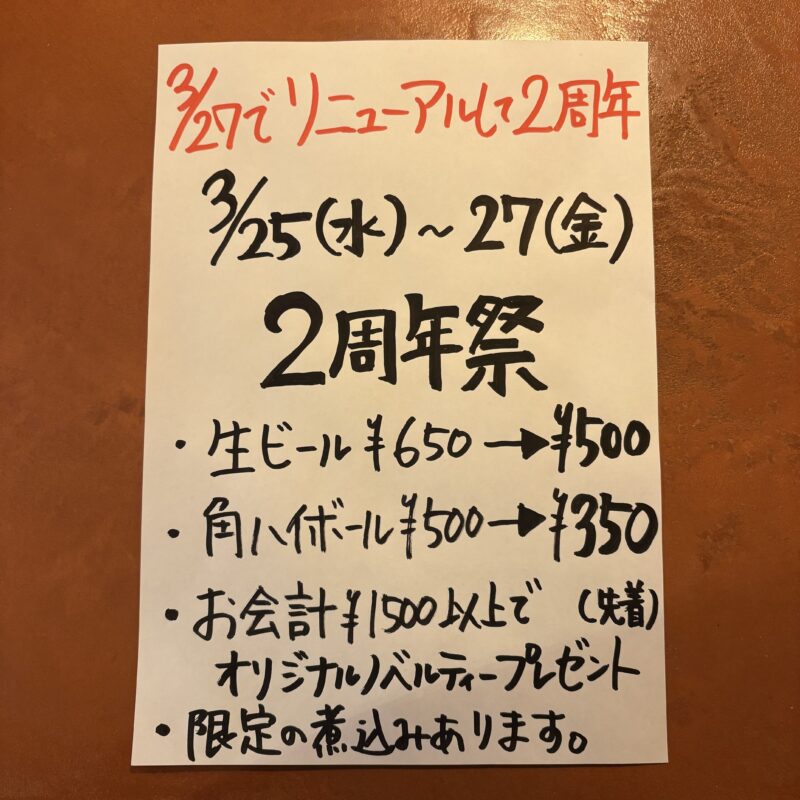 3/27でリニューアルして2周年
3/25(水)～27(金)
2周年祭
・生ビール¥650→¥500
・角ハイボール¥500→¥350
・お会計¥1500以上で(先着)
オリジナルノベルティープレゼント
・限定の煮込みあります。